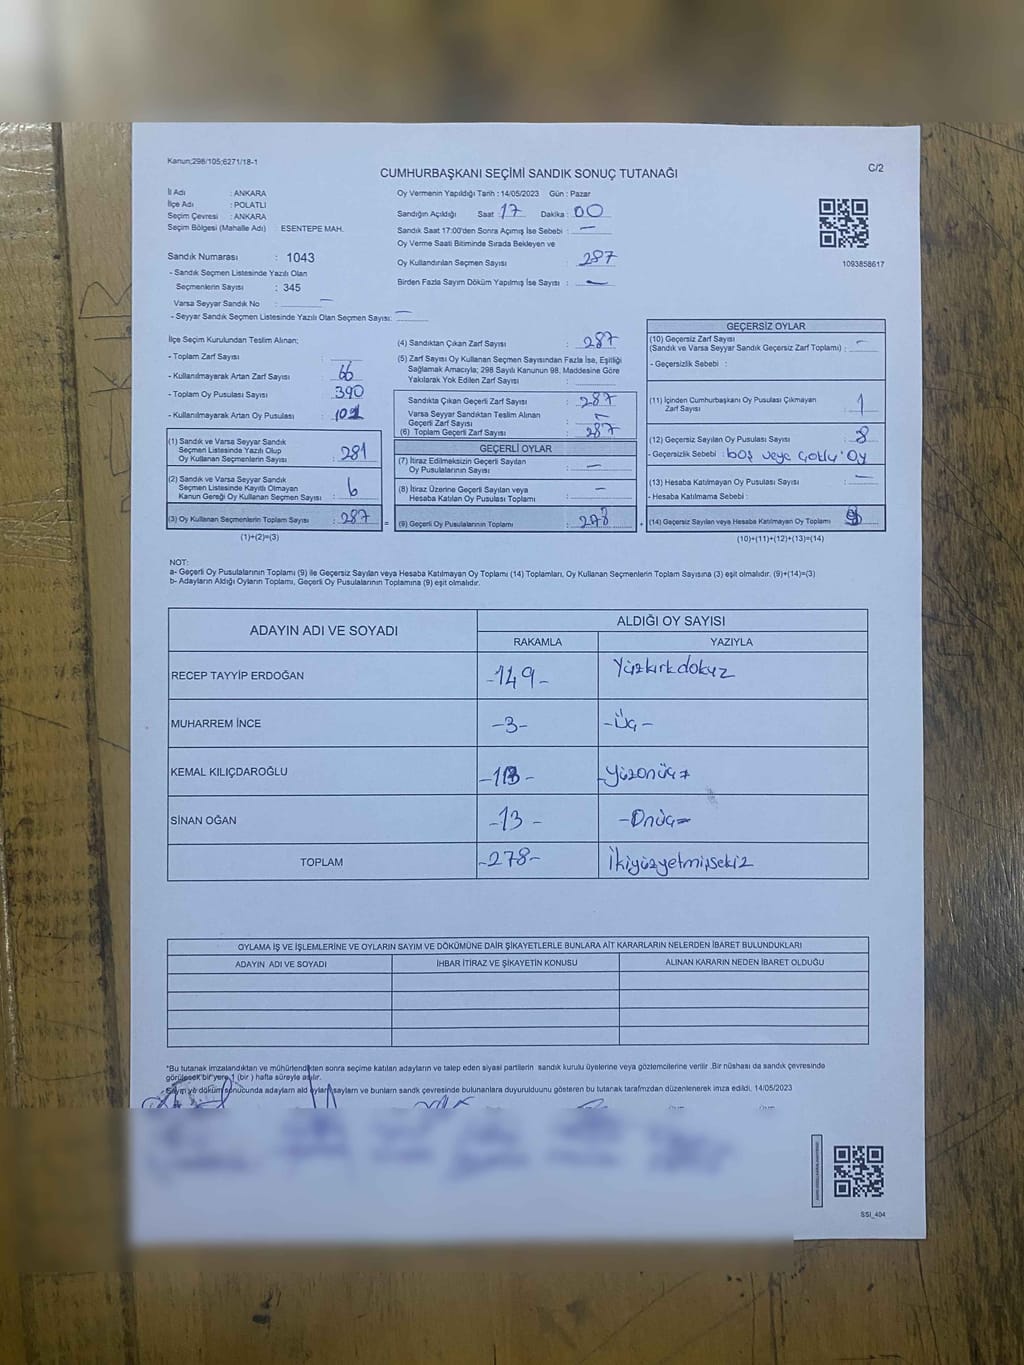 Kanun;298/105;6271/18-1
CUMHURBAŞKANI SEÇİMİ SANDIK SONUÇ TUTANAĞI
C/2
İl Adı : ANKARA
İlçe Adı : POLATLI
Seçim Çevresi : ANKARA
Seçim Bölgesi (Mahalle Adı) : ESENTEPE MAH.
Sandık Numarası : 1043
- Sandık Seçmen Listesinde Yazılı Olan
Seçmenlerin Sayısı : 345
Varsa Seyyar Sandık No : —
- Seyyar Sandık Seçmen Listesinde Yazılı Olan Seçmen Sayısı: —
Oy Vermenin Yapıldığı Tarih : 14/05/2023 Gün : Pazar
Sandığın Açıldığı Saat : 17 Dakika : 00
Sandık Saat 17:00'den Sonra Açımış İse Sebebi : —
Oy Verme Saati Bitiminde Sırada Bekleyen ve
Oy Kullandırılan Seçmen Sayısı : 287
Birden Fazla Sayım Döküm Yapılmış İse Sayısı : —
1093858617
İlçe Seçim Kurulundan Teslim Alınan;
- Toplam Zarf Sayısı :
- Kullanılmayarak Artan Zarf Sayısı : 66
- Toplam Oy Pusulası Sayısı : 390
- Kullanılmayarak Artan Oy Pusulası :
(1) Sandık ve Varsa Seyyar Sandık
Seçmen Listesinde Yazılı Olup
Oy Kullanan Seçmenlerin Sayısı : 281
(2) Sandık ve Varsa Seyyar Sandık
Seçmen Listesinde Kayıtlı Olmayan
Kanun Gereği Oy Kullanan Seçmen Sayısı : 6
(3) Oy Kullanan Seçmenlerin Toplam Sayısı : 287
(1)+(2)=(3)
(4) Sandıktan Çıkan Zarf Sayısı : 287
(5) Zarf Sayısı Oy Kullanan Seçmen Sayısından Fazla İse, Eşitliği
Sağlamak Amacıyla; 298 Sayılı Kanunun 98. Maddesine Göre
Yakılarak Yok Edilen Zarf Sayısı :
Sandıkta Çıkan Geçerli Zarf Sayısı : 287
Varsa Seyyar Sandıktan Teslim Alınan
Geçerli Zarf Sayısı : –
(6) Toplam Geçerli Zarf Sayısı : 287
GEÇERLİ OYLAR
(7) İtiraz Edilmeksizin Geçerli Sayılan
Oy Pusulalarının Sayısı : —
(8) İtiraz Üzerine Geçerli Sayılan veya
Hesaba Katılan Oy Pusulası Toplamı : —
= (9) Geçerli Oy Pusulalarının Toplamı : 278 +
GEÇERSİZ OYLAR
(10) Geçersiz Zarf Sayısı
(Sandık ve Varsa Seyyar Sandık Geçersiz Zarf Toplamı) : –
- Geçersizlik Sebebi :
(11) İçinden Cumhurbaşkanı Oy Pusulası Çıkmayan
Zarf Sayısı : 1
(12) Geçersiz Sayılan Oy Pusulası Sayısı : 8
- Geçersizlik Sebebi : boş veya çoklu oy
(13) Hesaba Katılmayan Oy Pusulası Sayısı : —
- Hesaba Katılmama Sebebi :
(14) Geçersiz Sayılan veya Hesaba Katılmayan Oy Toplamı : 9
(10)+(11)+(12)+(13)=(14)
NOT:
a- Geçerli Oy Pusulalarının Toplamı (9) ile Geçersiz Sayılan veya Hesaba Katılmayan Oy Toplamı (14) Toplamları, Oy Kullanan Seçmenlerin Toplam Sayısına (3) eşit olmalıdır. (9)+(14)=(3)
b- Adayların Aldığı Oyların Toplamı, Geçerli Oy Pusulalarının Toplamına (9) eşit olmalıdır.
ADAYIN ADI VE SOYADI
ALDIĞI OY SAYISI
RAKAMLA YAZIYLA
RECEP TAYYİP ERDOĞAN -149- Yüzkırkdokuz
MUHARREM İNCE -3- -Üç-
KEMAL KILIÇDAROĞLU -113- -Yüzonüç-
SİNAN OĞAN -13- -Onüç-
TOPLAM -278- İkiyüzyetmişsekiz
OYLAMA İŞ VE İŞLEMLERİNE VE OYLARIN SAYIM VE DÖKÜMÜNE DAİR ŞİKAYETLERLE BUNLARA AİT KARARLARIN NELERDEN İBARET BULUNDUKLARI
ADAYIN ADI VE SOYADI İHBAR İTİRAZ VE ŞİKAYETİN KONUSU ALINAN KARARIN NEDEN İBARET OLDUĞU
*Bu tutanak imzalandıktan ve mühürlendikten sonra seçime katılan adayların ve talep eden siyasi partilerin sandık kurulu üyelerine veya gözlemcilerine verilir .Bir nüshası da sandık çevresinde
görülecek bir yere 1 (bir ) hafta süreyle asılır.
- Sayım ve döküm sonucunda adayların aldığı oyların sayıları ve bunların sandık çevresinde bulunanlara duyurulduğunu gösteren bu tutanak tarafımızdan düzenlenerek imza edildi. 14/05/2023
SSI_404